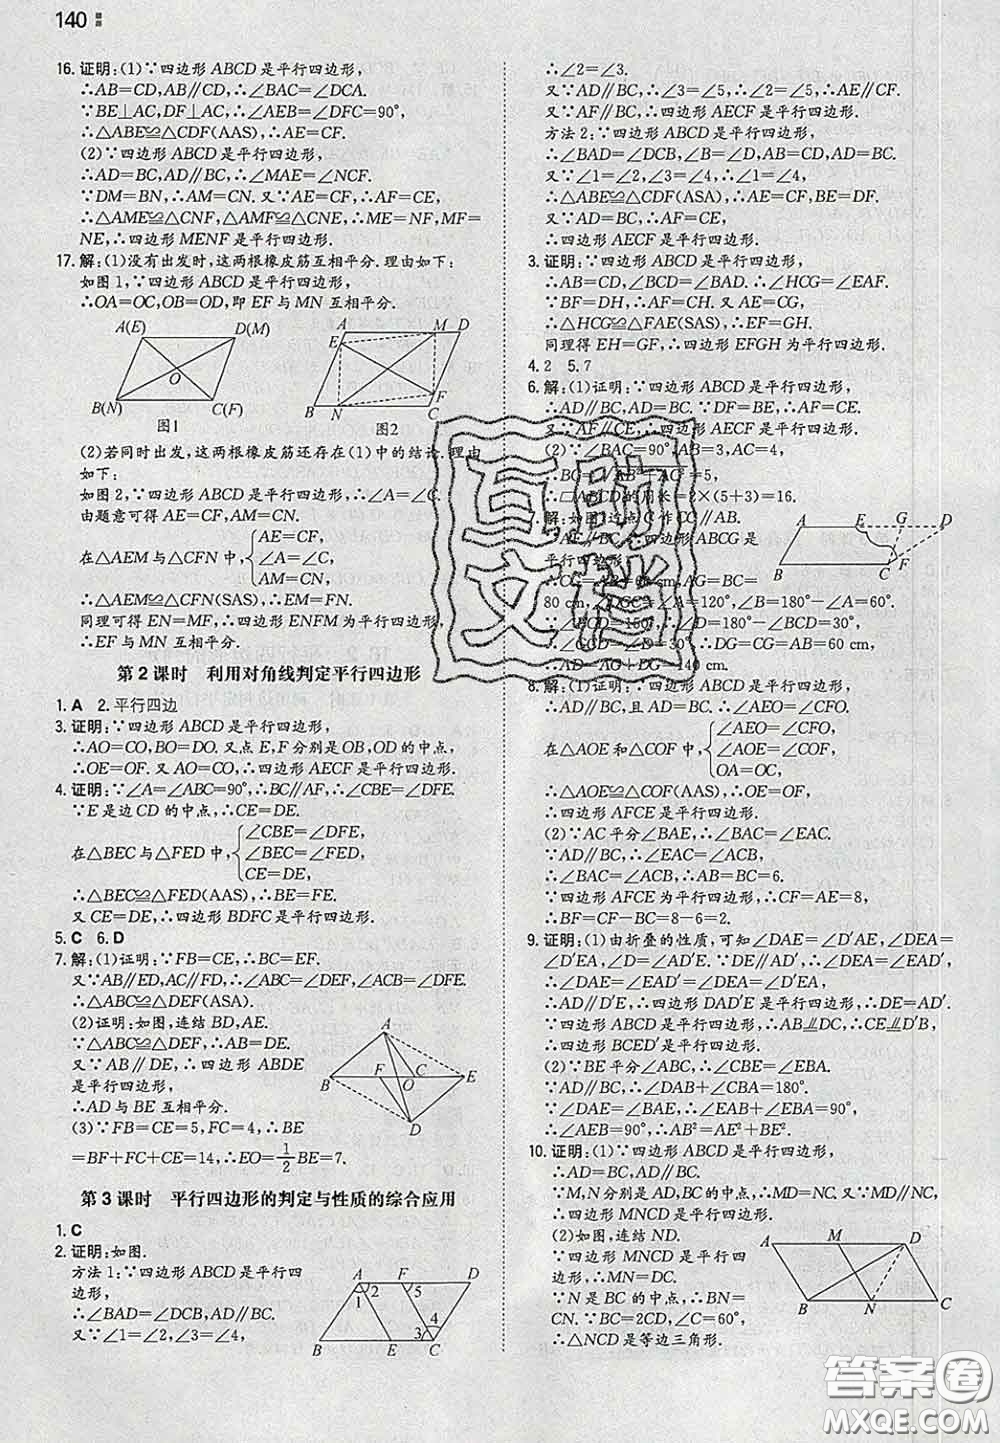 140
16. 证明:(1)∵四边形ABCD是平行四边形,
∴AB=CD,AB∥CD,∴∠BAC=∠DCA.
∵BE⊥AC,DF⊥AC,∴∠AEB=∠DFC=90°,
∴△ABE≌△CDF(AAS),∴AE=CF.
(2)∵四边形ABCD是平行四边形,
∴AD=BC,AD∥BC,∴∠MAE=∠NCF.
∵DM=BN,∴AM=CN.∵AE=CF,∴AF=CE,
∴△AME≌△CNF,△AMF≌△CNE,∴ME=NF,MF=
NE,∴四边形MENF是平行四边形.
17. 解:(1)没有出发时,这两根橡皮筋互相平分.理由如下:
如图1,∵四边形ABCD是平行四边形,
∴OA=OC,OB=OD,即EF与MN互相平分.
A(E) D(M) O B(N) C(F)
A M D E F B N C
图1 图2
(2)若同时出发,这两根橡皮筋还存在(1)中的结论.理由
如下:
如图2,∵四边形ABCD是平行四边形,∴∠A=∠C.
由题意可得AE=CF,AM=CN.
在△AEM与△CFN中,{AE=CF,
∠A=∠C,
AM=CN,
∴△AEM≌△CFN(SAS),∴EM=FN.
同理可得EN=MF,∴四边形ENFM是平行四边形,
∴EF与MN互相平分.
第2课时 利用对角线判定平行四边形
1. A 2. 平行四边
3. 证明:∵四边形ABCD是平行四边形,
∴AO=CO,BO=DO.又点E,F分别是OB,OD的中点,
∴OE=OF.又AO=CO,∴四边形AECF是平行四边形.
4. 证明:∵∠A=∠ABC=90°,∴BC∥AF,∴∠CBE=∠DFE.
∵E是边CD的中点,∴CE=DE.
在△BEC与△FED中,{∠CBE=∠DFE,
∠BEC=∠FED,
CE=DE,
∴△BEC≌△FED(AAS),∴BE=FE.
又CE=DE,∴四边形BDFC是平行四边形.
5. C 6. D
7. 解:(1)证明:∵FB=CE,∴BC=EF.
又∵AB∥ED,AC∥FD,∴∠ABC=∠DEF,∠ACB=∠DFE,
∴△ABC≌△DEF(ASA).
(2)证明:如图,连结BD,AE.
∵△ABC≌△DEF,∴AB=DE.
又∵AB∥DE,∴四边形ABDE
是平行四边形,
∴AD与BE互相平分.
(3)∵FB=CE=5,FC=4,∴BE
=BF+FC+CE=14,∴EO=1/2BE=7.
A B F O C E D
第3课时 平行四边形的判定与性质的综合应用
1. C
2. 证明:如图.
方法1:∵四边形ABCD是平行四
边形,
∴∠BAD=∠DCB,AD∥BC.
又∵∠1=∠2,∠3=∠4,
A F D 1 2 5 3 4 B E C
∴∠2=∠3.
又∵AD∥BC,∴∠3=∠5,∴∠2=∠5,∴AE∥CF.
又∵AF∥BC,∴四边形AECF是平行四边形.
方法2:∵四边形ABCD是平行四边形,
∴∠BAD=∠DCB,∠B=∠D,AB=CD,AD=BC.
又∵∠1=∠2,∠3=∠4,∴∠1=∠4,
∴△ABE≌△CDF(ASA),∴AE=CF,BE=DF.
又∵AD=BC,∴AF=CE,
∴四边形AECF是平行四边形.
3. 证明:∵四边形ABCD是平行四边形,
∴AB=CD,∠BCD=∠BAD.∴∠HCG=∠EAF.
∵BF=DH,∴AF=CH.又∵AE=CG,
∴△HCG≌△FAE(SAS),∴EF=GH.
同理得EH=GF,∴四边形EFGH为平行四边形.
4. 2 5. 7
6. 解:(1)证明:∵四边形ABCD是平行四边形,
∴AD∥BC,AD=BC.∵DF=BE,∴AF=CE.
又∵AF∥CE,∴四边形AECF是平行四边形.
(2)∵∠BAC=90°,AB=3,AC=4,
∴BC=√AB²+AC²=5,
∴□ABCD的周长=2×(5+3)=16.
7. 解:如图,过点C作CG∥AB.
∵AE∥BC,∴四边形ABCG是
平行四边形,
∴CG=AB=60 cm,AG=BC=
80 cm,∠DGC=∠A=120°,∠B=180°-∠A=60°.
∵∠BCD=150°,∴∠D=180°-∠BCD=30°,
∴∠GCD=180°-∠DGC-∠D=30°,∴DG=CG=AB=60 cm,
∴AD=AG+DG=140 cm.
A E G D B C F
8. 解:(1)证明:∵四边形ABCD是平行四边形,
∴AD∥BC,且AD=BC.∴∠AEO=∠CFO.
在△AOE和△COF中,{∠AEO=∠CFO,
∠AOE=∠COF,
OA=OC,
∴△AOE≌△COF(AAS),∴OE=OF,
∴四边形AFCE是平行四边形.
(2)∵AC平分∠BAE,∴∠BAC=∠EAC.
∵AD∥BC,∴∠EAC=∠ACB,
∴∠BAC=∠ACB,∴AB=BC=6.
∵四边形AFCE为平行四边形,∴CF=AE=8,
∴BF=CF-BC=8-6=2.
9. 证明:(1)由折叠的性质,可知∠DAE=∠D′AE,∠DEA=
∠D′EA,∠D=∠AD′E.∵DE∥AD′,∴∠DEA=∠EAD′,
∴∠DAE=∠EAD′=∠DEA=∠D′EA,
∴AD∥D′E,∴四边形DAD′E是平行四边形,∴DE=AD′.
∵四边形ABCD是平行四边形,∴AB∥DC,∴CE∥D′B,
∴四边形BCED′是平行四边形.
(2)∵BE平分∠ABC,∴∠CBE=∠EBA.
∵AD∥BC,∴∠DAB+∠CBA=180°.
∵∠DAE=∠BAE,∴∠EAB+∠EBA=90°,
∴∠AEB=90°,∴AB²=AE²+BE².
10. 证明:(1)∵四边形ABCD是平行四边形,
∴AD=BC,AD∥BC.
∵M,N分别是AD,BC的中点,∴MD=NC.又∵MD∥NC,
∴四边形MNCD是平行四边形.
(2)如图,连结ND.
∵四边形MNCD是平行四
边形,∴MN=DC.
∵N是BC的中点,∴BN=
CN.∵BC=2CD,∠C=60°,
∴△NCD是等边三角形.
A M D B N C
互助文档
答案圈
MXQE.COM